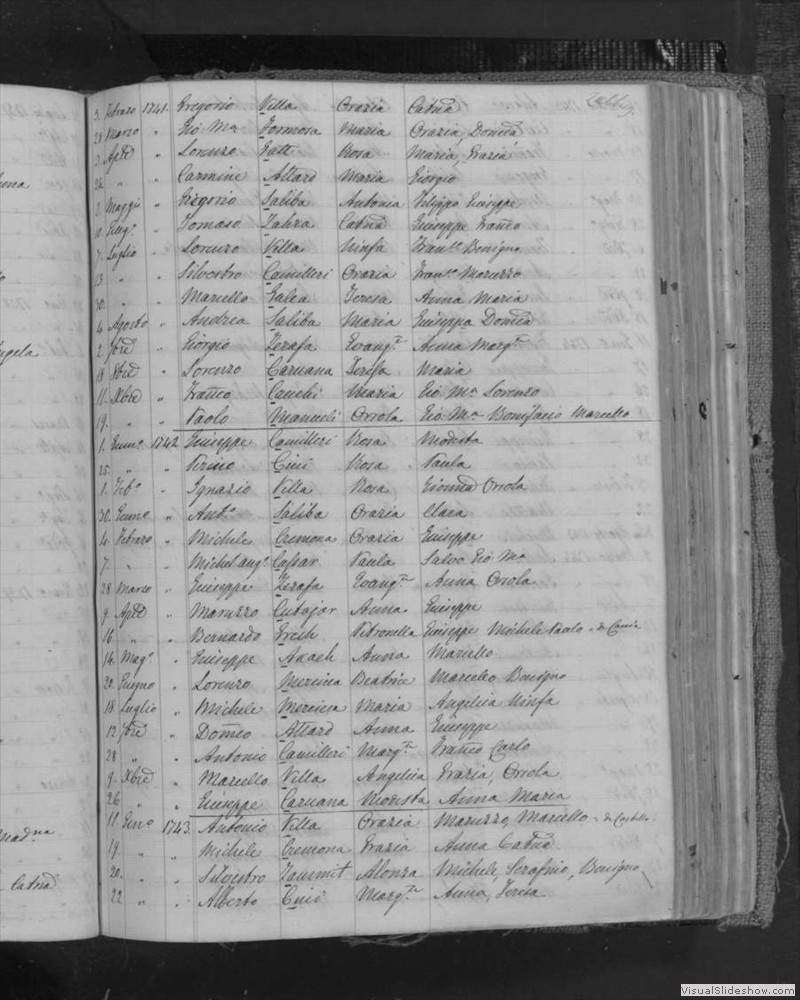 3. Febraro 1741. Gregorio Villa Orazia Catnā
28 Marzo " Gio Mᵃ Formosa Maria Orazia Domcā
3 Aple " Lorenzo Fatt Rosa Maria, Grazia
26 " " Carmine Attard Maria Giorgio
2 Maggio " Gregorio Saliba Antonia Filippo Giuseppe
10 Giugº " Tomaso Zahra Catnā Giuseppe Franco
7 Luglio " Lorenzo Villa Ninfa Franᶜᵒ Benigno
13 " " Silvestro Camilleri Orazia Franᶜᵒ Maruzzo
30 " " Marcello Galea Teresa Anna Maria
4 Agosto " Andrea Saliba Maria Giuseppa Domcā
2 7bre " Giorgio Zerafa Evangᵗᵃ Anna Margᵗᵃ
18 8bre " Lorenzo Caruana Teresa Maria
11. Xbre " Franco Cauchi Maria Gio Mᵃ Lorenzo
19. " " Paolo Manueli Orsola Gio Mᵃ Bonifacio Marcello
1. Genno 1742 Giuseppe Camilleri Rosa Modesta
25. " " Pirino Cini Rosa Paula
1. Febº " Ignazio Villa Rosa Orsola
30. Genno " Antº Saliba Orazia Clara
4. Febraro " Michele Cremona Orazia Giuseppe
7 " " Michel angº Cassar Paula Salvo Gio Mᵃ
28 Marzo " Giuseppe Zerafa Evangᵗᵃ Anna Orsola
9 Aple " Maruzzo Cutajar Anna Giuseppe
16 " " Bernardo Grech Petronella Giuseppe Michele Paolo
14. Magº " Giuseppe Axach Anna Marcello
20. Giugno " Lorenzo Mercieca Beatrice Marcello Benigno
18 Luglio " Michele Mercieca Maria Angelica Ninfa
12 7bre " Domco Attard Anna Giuseppe
28 " " Antonio Camilleri Margᵗᵃ Franco Carlo
9. Xbre " Marcello Villa Angelica Grazia, Orsola
26 " " Giuseppe Caruana Modesta Anna Maria
11 Genº 1743. Antonio Villa Orazia Maruzzo, Marcello
19 " " Michele Cremona Grazia Anna Catnā
20. " " Silvestro Zammit Alonza Michele, Serafino, Benigno
22 " " Alberto Cini Margᵗᵃ Anna, Teresa
VisualSlideshow.com